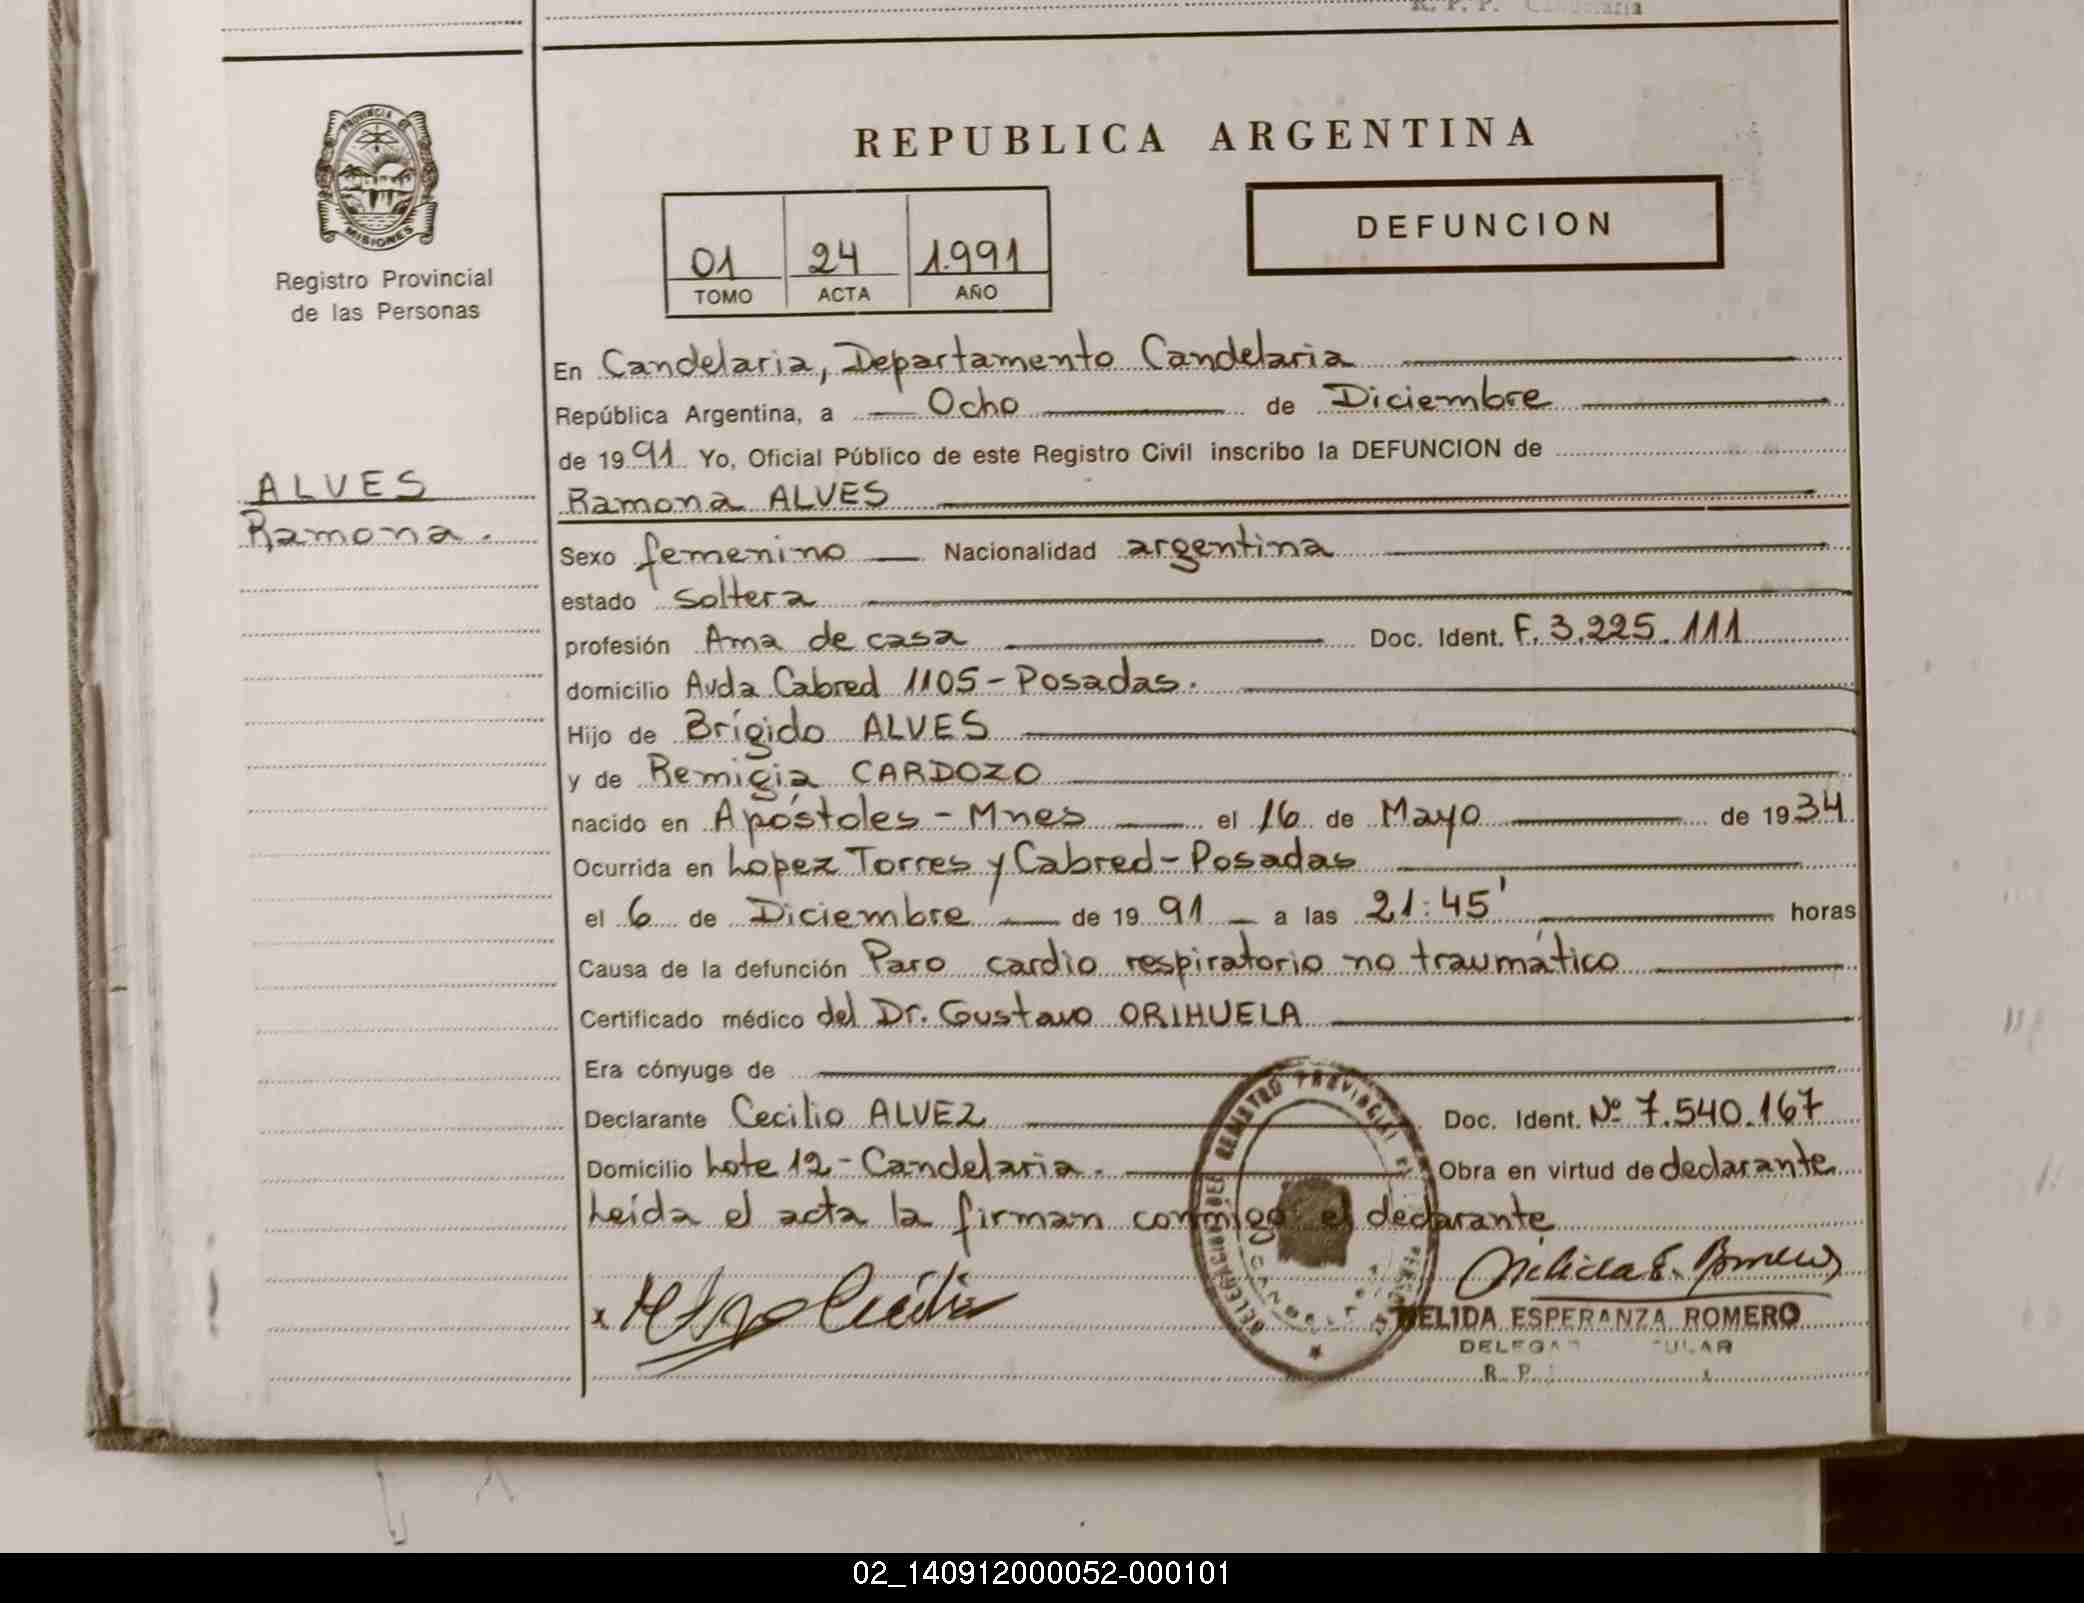 PROVINCIA DE
MISIONES
Registro Provincial
de las Personas
ALVES
Ramona.
REPUBLICA ARGENTINA
01 24 1.991
TOMO ACTA AÑO
DEFUNCION
En Candelaria, Departamento Candelaria
República Argentina, a Ocho de Diciembre
de 1991 Yo, Oficial Público de este Registro Civil inscribo la DEFUNCION de
Ramona ALVES
Sexo femenino Nacionalidad argentina
estado soltera
profesión Ama de casa Doc. Ident. F. 3.225.111
domicilio Avda Cabred 1105 - Posadas.
Hijo de Brígido ALVES
y de Remigia CARDOZO
nacido en Apóstoles - Mnes el 16 de Mayo de 1934
Ocurrida en Lopez Torres y Cabred - Posadas
el 6 de Diciembre de 1991 a las 21:45' horas
Causa de la defunción Paro cardio respiratorio no traumático
Certificado médico del Dr. Gustavo ORIHUELA
Era cónyuge de
Declarante Cecilio ALVEZ Doc. Ident. Nº 7.540.167
Domicilio Lote 12 - Candelaria. Obra en virtud de declarante
Leída el acta la firman conmigo el declarante
x
NELIDA ESPERANZA ROMERO
R. P.
02_140912000052-000101